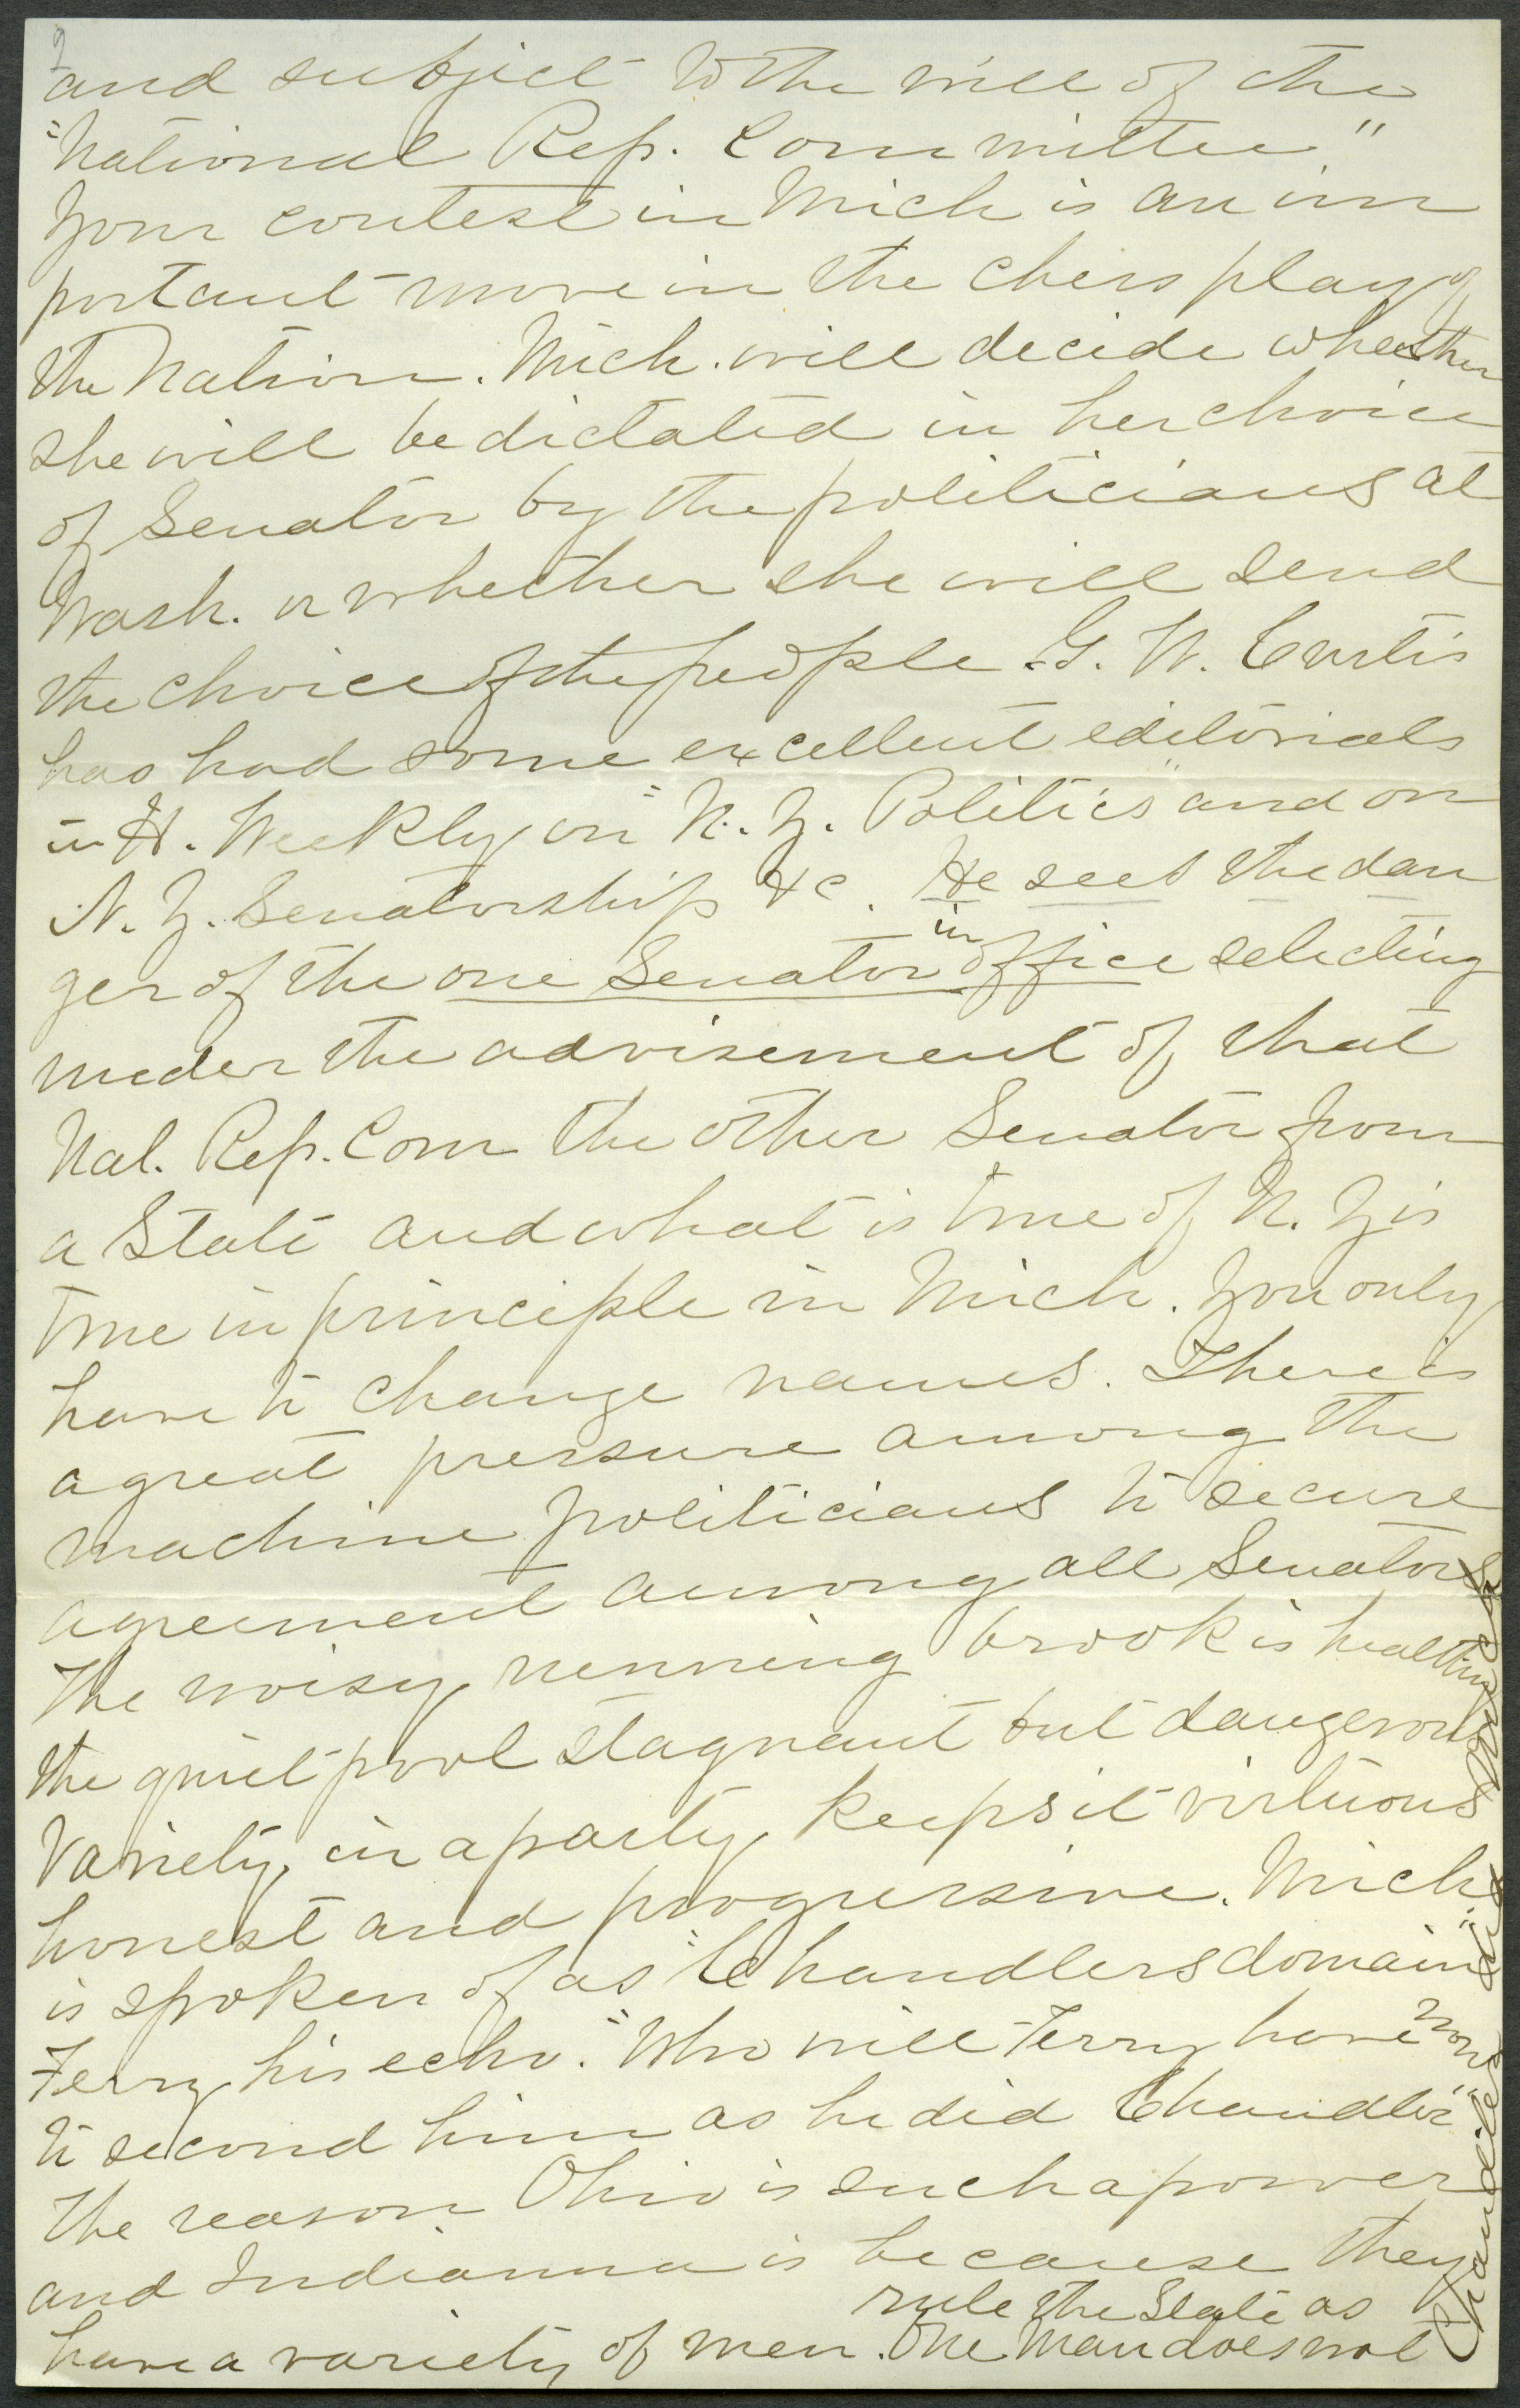 2
and subject to the will of the
"National Rep. Committee"
Your contest in Mich is an im
portant move in the chess play of
the Nation. Mich. will decide whether
she will be dictated in her choice
of Senator by the politicians at
Wash. or whether she will send
the choice of the people. G. W. Curtis
has had some excellent editorials
in H. Weekly on "N. Y. Politics" and on
N. Y. Senatorship &c. He sees the dan
ger of the one Senator in office selecting
under the advisement of that
Nat. Rep. Com the other Senator from
a State and what is true of N. Y is
true in principle in Mich. You only
have to change names. There is
a great pressure among the
machine politicians to secure
agreement among all Senators
The noisy running brook is healthy
the quiet pool stagnant but dangerous
Variety in a party keeps it virtuous
honest and progressive. Mich.
is spoken of as "Chandlers domain"
Ferry his echo. "Who will Ferry have now
to second him as he did Chandler"
The reason Ohio is such a power
and Indianna is because they
have a variety of men. One Man does not
rule the State as
Chandler did